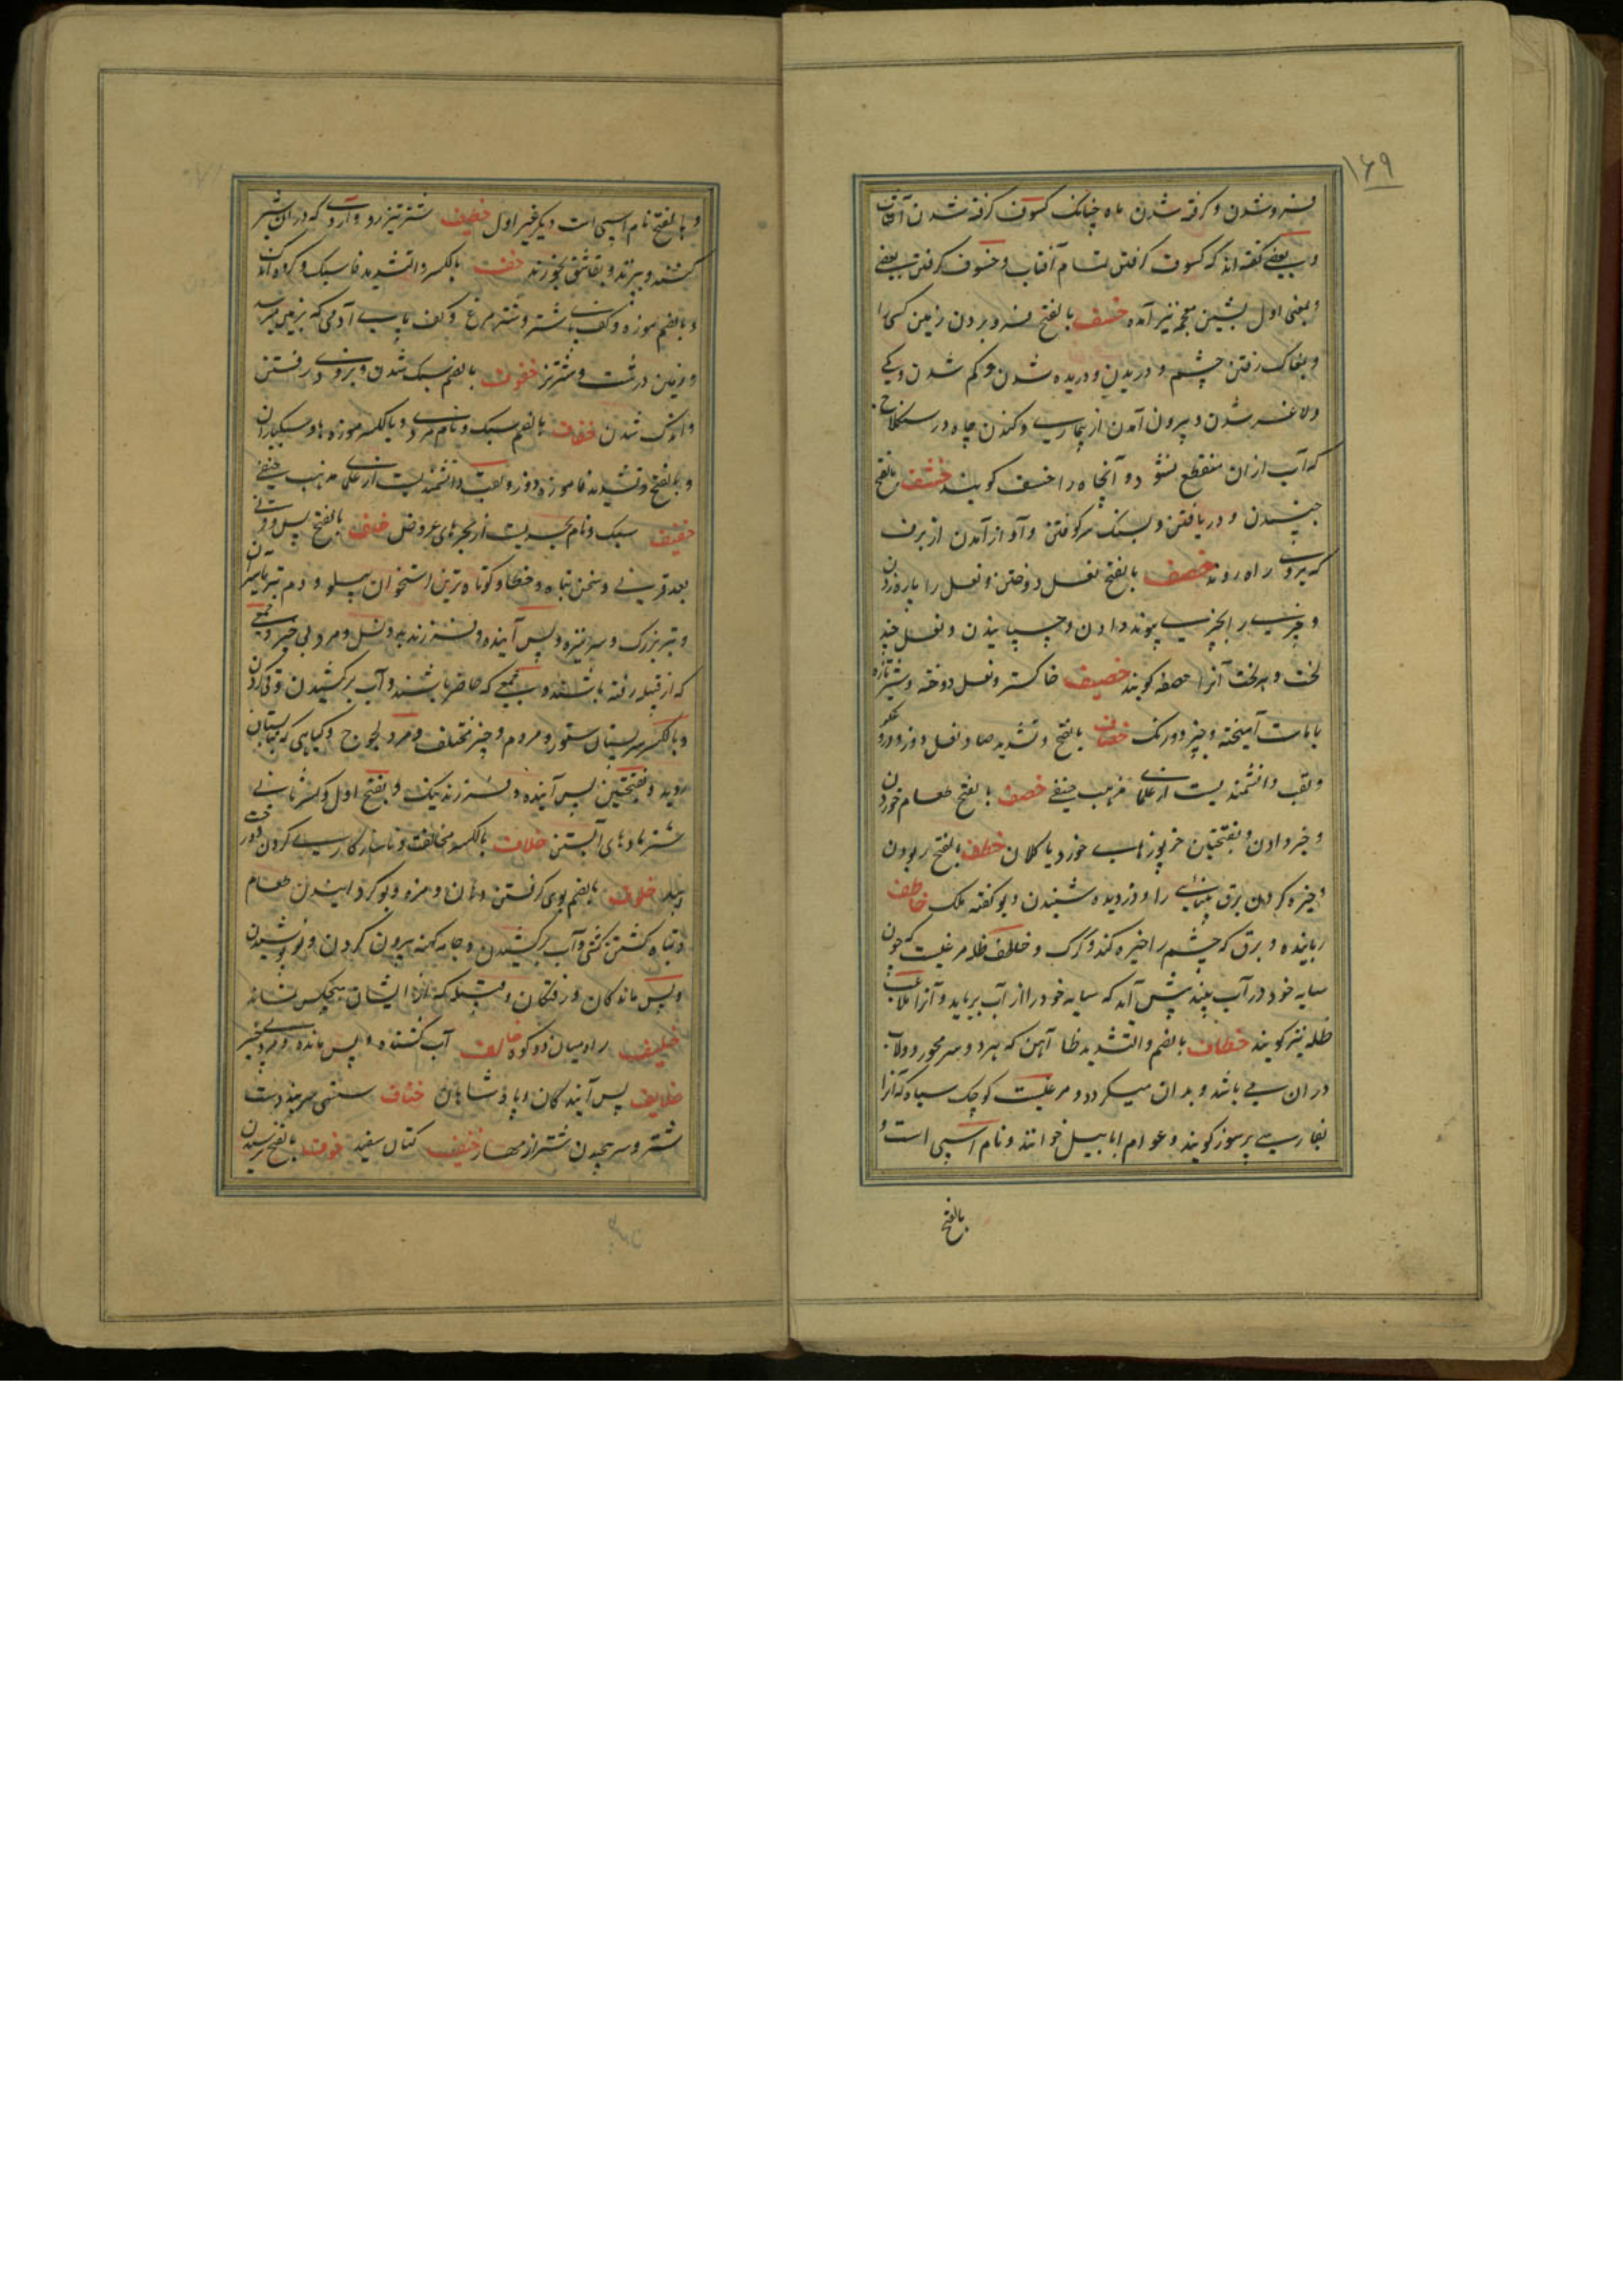 ۱۶۹
فروشدن و گرفته شدن ماه چنانکه کسوف گرفته شدن آفتاب
و بعضی گفته اند که کسوف گرفتن تمام آفتاب و خسوف گرفتن بعضی
و بمعنی اول بشین معجمه نیز آمده خسف بالفتح فرو بردن زمین کسی را
و بمغاک رفتن چشم و دریدن و دریده شدن و کم شدن و
و لاغر شدن و بیرون آمدن از بیماری و کندن چاه در سنگلاخ
که آب ازان منقطع نشود و آنچاه را خسف کویند خشف بالفتح
جنبیدن و دریافتن و بسنک سر کوفتن و آواز آمدن از برف
که بروی راه روند خصف بالفتح نعل دوختن و نعل را پاره زدن
و چیزی را بچیزی پیوند دادن و چسپانیدن و نعل چند
لخت و هر لخت آنرا خصفه کویند خصیف خاکستر و نعل دوخته و شیر تازه
با ماست آمیخته و چیز دورنک خصاف بالفتح و تشدید صاد نعل دوز و دروغکو
و لقب دانشمندیست از علمای مذهب حنفی خضف بالفتح طعام خوردن
و خبر دادن و بفتحتین خربوزهای خورد یا کلان خطف بالفتح ربودن
و خیره کردن برق بینایی را و دزدیده شنیدن دیو کفته ملک خاطف
رباینده و برق که چشم را خیره کند و کرک و خاطف ظله مرغیست که چون
سایه خود در آب بیند پیش آید که سایه خود را از آب برباید و آنرا ملاعب
ظله نیز کویند خطاف بالضم و التشدید طا آهن که بر دو سر محور دولاب
دران می باشد و بدان میکردد و مرغیست کوچک سیاه که آنرا
بفارسی پرسوز کویند و عوام ابابیل خوانند و نام اسپی است و
بالفتح
و بالفتح نام اسپی است دیکر غیر اول خطیف شتر تیزرو و آردی که دران شیر
کنند و بپزند و بقاشق بخورند خف بالکسر و التشدید فا سبک و کروه اندک
و بالضم موزه و کف پای شتر و شترمرغ و کف پای آدمی که بزمین میرسد
و زمین درشت و شتر نیز خفوف بالضم سبک شدن و بزودی رفتن
و اندک شدن خفاف بالضم سبک و نام مردی و بالکسر موزه ها و سبکباران
و بالفتح و تشدید فا موزه دوز و لقب دانشمندیست از علمای مذهب حنفی
خفیف سبک و نام بحریست از بحرهای عروض خلف بالفتح پس و قرنی
بعد قرنی و سخن تباه و خطا و کوتاه ترین استخوان پهلو و دم تبر یا سر آن
و تبر بزرک و سر نیزه و پس آینده و فرزند بد و نسل و مرد بی خیر و جمعی
که از قبیله رفته باشند و جمعی که حاضر باشند و آب برکشیدن و قی کردن
و بالکسر سر پستان ستور و مردم و چیز مختلف و مرد لجوج و کیاهی که بتابستان
روید و بفتحتین پس آینده و فرزند نیک و بفتح اول و کسر ثانی
شتر مادهای آبستن خلاف بالکسر مخالفت و ناسازکاری کردن و درخت
بید خلوف بالضم بوی کرفتن دهان و مزه و بو کردانیدن طعام
و تباه کشتن و آب برکشیدن و جامه کهنه بیرون کردن و نو پوشیدن
و پس ماندکان و رفتکان و قبیله که از ایشان هیچکس نمانده
خلیف راه میان دو کوه خالف آب کشنده و پس مانده و مرد بی خیر
خلایف پس آیندکان و پادشاهان خناف سستی سر بند دست
شتر و سر پیچیدن شتر از مهار خنیف کتان سفید خوف بالفتح ترسیدن